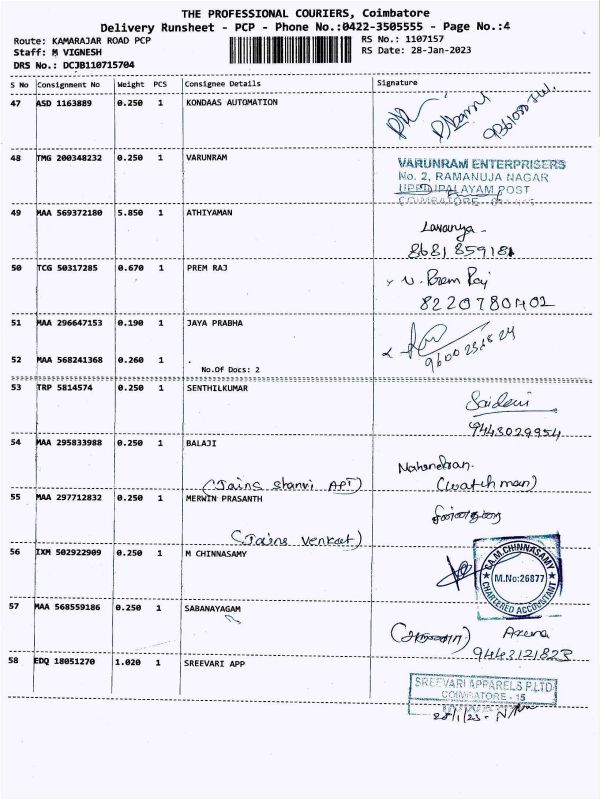 THE PROFESSIONAL COURIERS, Coimbatore
Delivery Runsheet - PCP - Phone No.:0422-3505555 - Page No.:4
Route: KAMARAJAR ROAD PCP
Staff: M VIGNESH
DRS No.: DCJB110715704
RS No.: 1107157
RS Date: 28-Jan-2023
S No Consignment No Weight PCS Consignee Details Signature
47 ASD 1163889 0.250 1 KONDAAS AUTOMATION
48 TMG 200348232 0.250 1 VARUNRAM
VARUNRAM ENTERPRISERS
No. 2, RAMANUJA NAGAR
UPPILIPALAYAM POST
COIMBATORE
49 MAA 569372180 5.850 1 ATHIYAMAN
Lavanya
8681859181
50 TCG 50317285 0.670 1 PREM RAJ
8220780402
51 MAA 296647153 0.190 1 JAYA PRABHA
52 MAA 568241368 0.260 1 .
No.Of Docs: 2
53 TRP 5814574 0.250 1 SENTHILKUMAR
9443029954
54 MAA 295833988 0.250 1 BALAJI
Mahendran.
(Watchman)
(Jains APT)
55 MAA 297712832 0.250 1 MERWIN PRASANTH
(Jains Venkat)
56 IXM 502922909 0.250 1 M CHINNASAMY
CA.M.CHINNASAMY
M.No:26877
CHARTERED ACCOUNTANT
57 MAA 568559186 0.250 1 SABANAYAGAM
9443121823
58 EDQ 18051270 1.020 1 SREEVARI APP
SREEVARI APPARELS P.LTD
COIMBATORE - 15
28/1/23